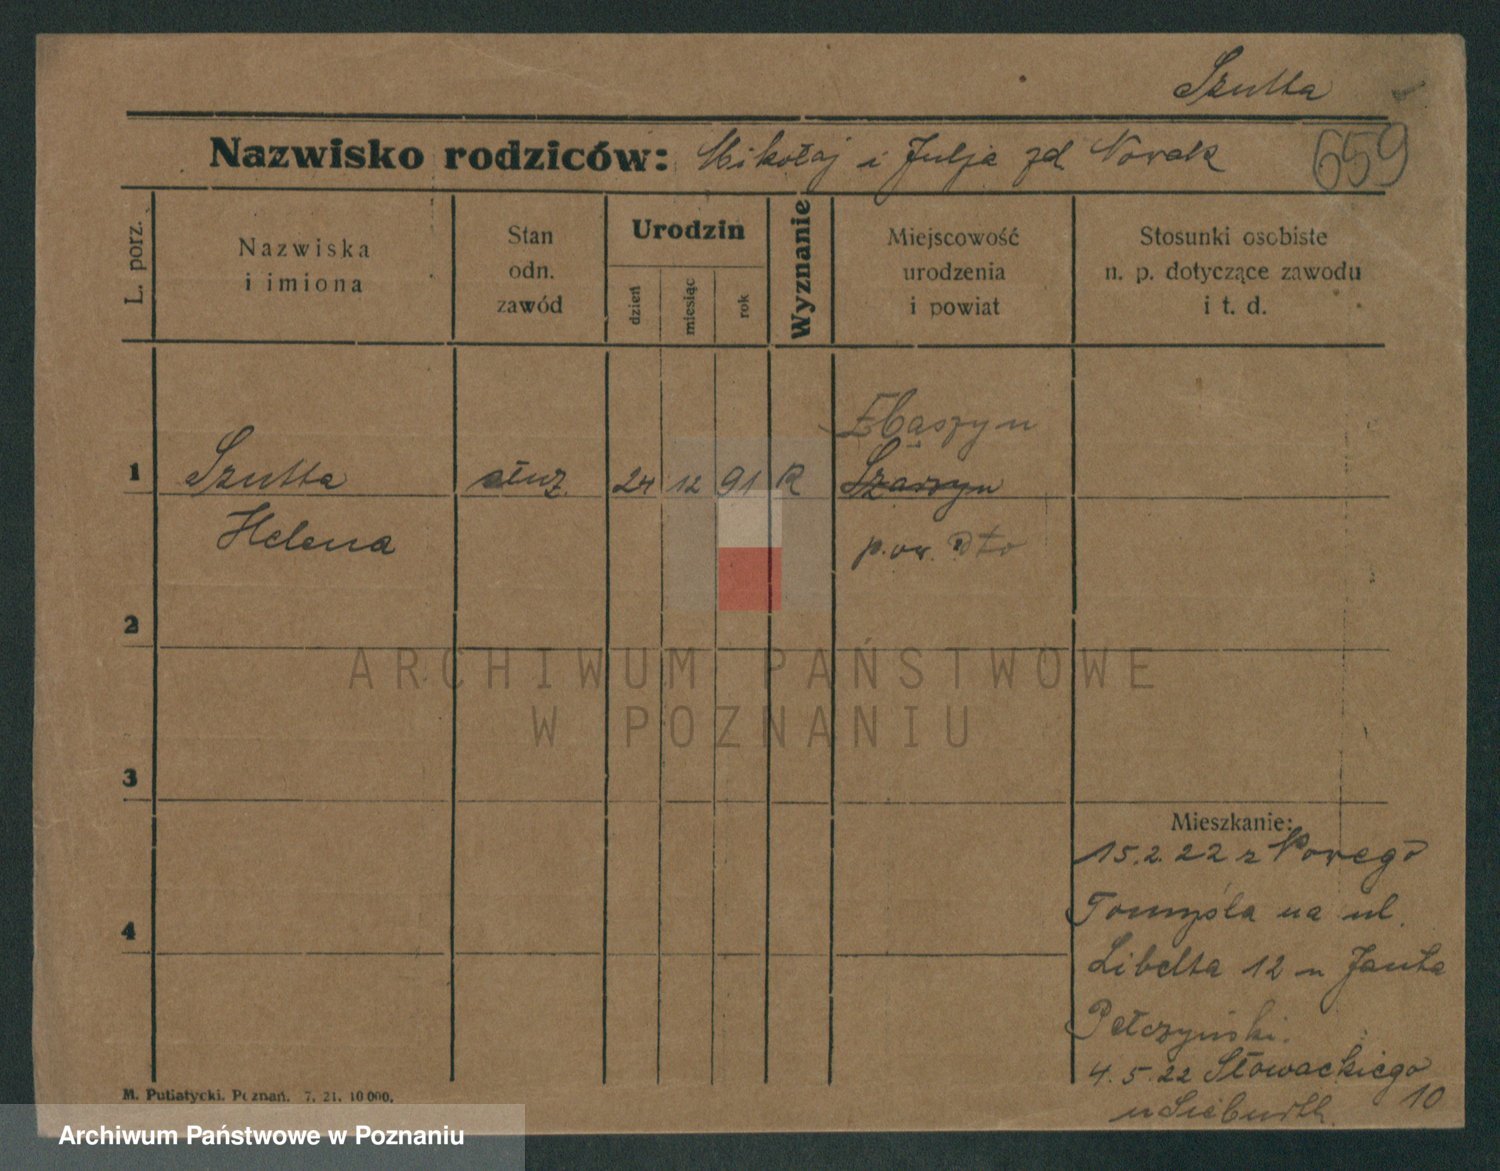 Szulta
Nazwisko rodziców: Mikołaj i Julja zd Nowak
659
L. porz.
Nazwiska
i imiona
Stan
odn.
zawód
Urodzin
dzień
miesiąc
rok
Wyznanie
Miejscowość
urodzenia
i powiat
Stosunki osobiste
n. p. dotyczące zawodu
i t. d.
Zbąszyn
1 Szulta służ. 24 12 91 R
Helena
pow. dto
2
3
4
Mieszkanie:
15.2.22 z Nowego
Tomyśla na ul.
Libelta 12 u Janta
Połczyński.
4.5.22 Słowackiego
10
M. Putiatycki. Poznań. 7. 21. 10 000.
ARCHIWUM PAŃSTWOWE
W POZNANIU
Archiwum Państwowe w Poznaniu